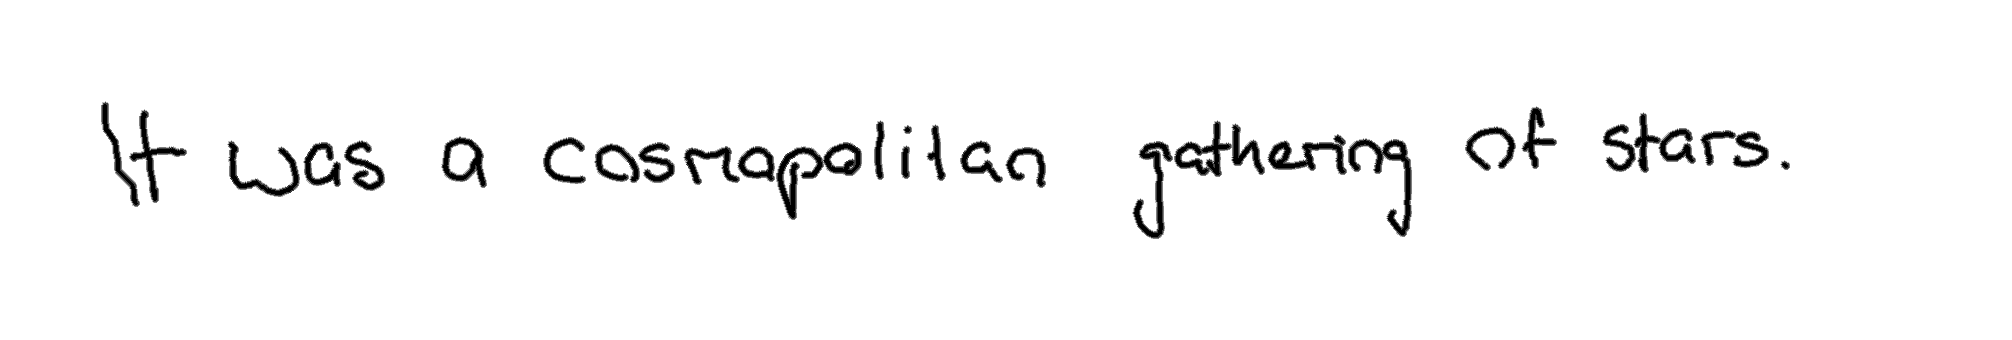 It was a cosmopolitan gathering of stars.